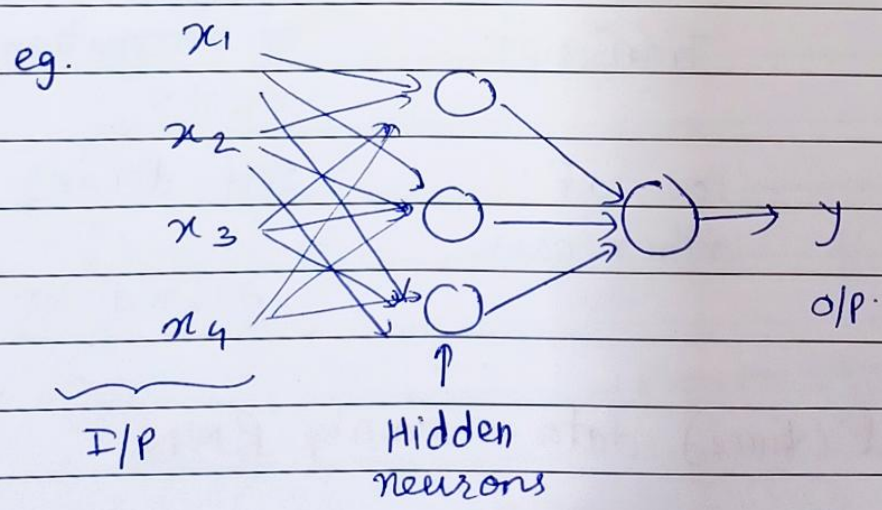 eg.
x1
x2
x3
x4
y
O/P.
I/P
Hidden
neurons